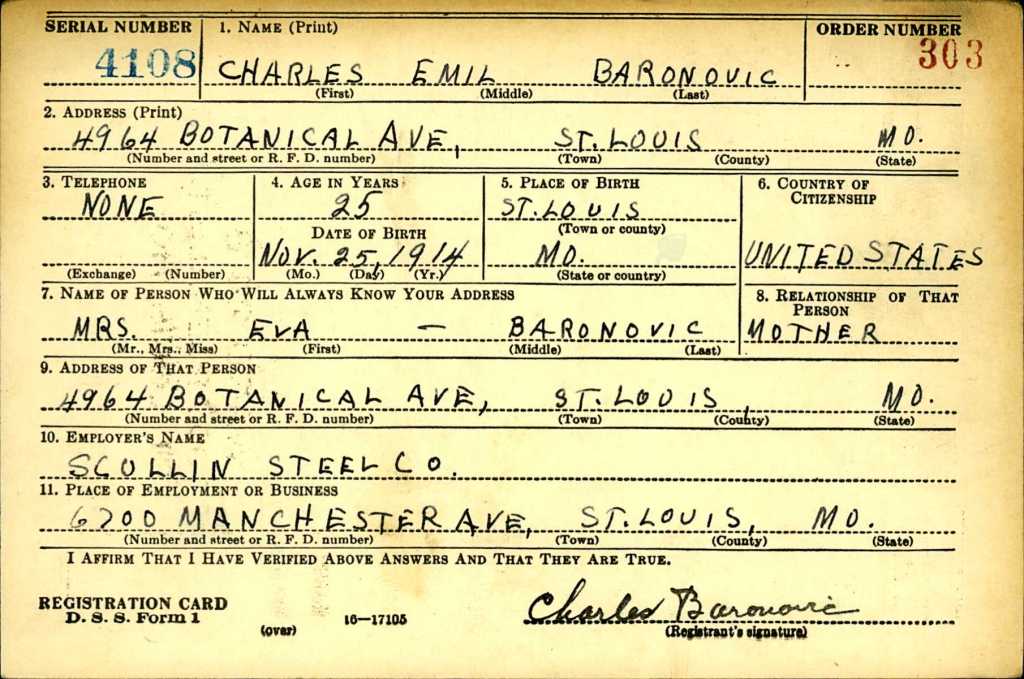 SERIAL NUMBER 1. NAME (Print) ORDER NUMBER
4108 CHARLES EMIL BARONOVIC 303
(First) (Middle) (Last)
2. ADDRESS (Print)
4964 BOTANICAL AVE, ST. LOUIS MO.
(Number and street or R. F. D. number) (Town) (County) (State)
3. TELEPHONE 4. AGE IN YEARS 5. PLACE OF BIRTH 6. COUNTRY OF CITIZENSHIP
NONE 25 ST. LOUIS
(Town or county)
DATE OF BIRTH
NOV. 25, 1914 MO. UNITED STATES
(Exchange) (Number) (Mo.) (Day) (Yr.) (State or country)
7. NAME OF PERSON WHO WILL ALWAYS KNOW YOUR ADDRESS 8. RELATIONSHIP OF THAT PERSON
MRS. EVA — BARONOVIC MOTHER
(Mr., Mrs., Miss) (First) (Middle) (Last)
9. ADDRESS OF THAT PERSON
4964 BOTANICAL AVE, ST. LOUIS, MO.
(Number and street or R. F. D. number) (Town) (County) (State)
10. EMPLOYER'S NAME
SCULLIN STEEL CO.
11. PLACE OF EMPLOYMENT OR BUSINESS
6700 MANCHESTER AVE, ST. LOUIS, MO.
(Number and street or R. F. D. number) (Town) (County) (State)
I AFFIRM THAT I HAVE VERIFIED ABOVE ANSWERS AND THAT THEY ARE TRUE.
REGISTRATION CARD Charles Baronovic
D. S. S. Form 1 (over) 16—17105 (Registrant's signature)